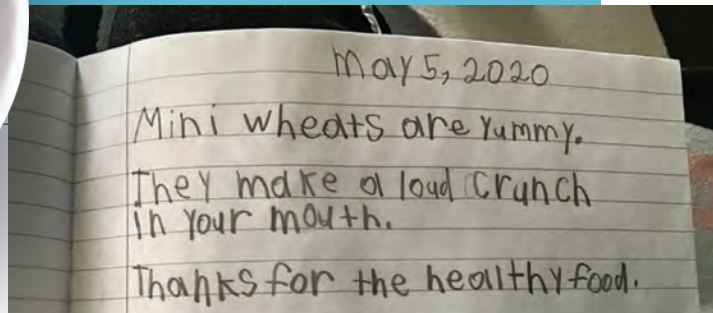 May 5, 2020
Mini wheats are yummy.
They make a loud crunch
in your mouth.
Thanks for the healthy food.